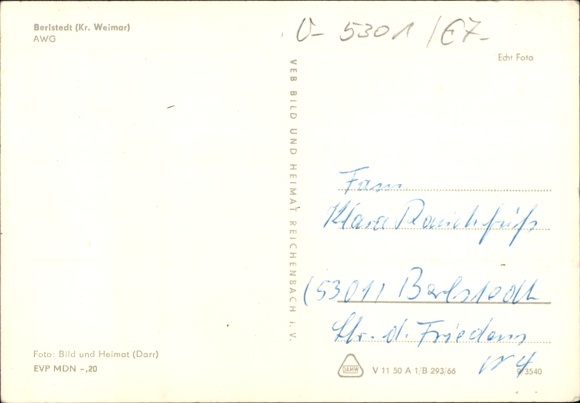 Berlstedt (Kr. Weimar)
AWG
V- 5301 /E7-
Echt Foto
VEB BILD UND HEIMAT REICHENBACH i. V.
Fam.
Klara Rauchfuß
(5301) Berlstedt
Str. d. Friedens
Nr 4
Foto: Bild und Heimat (Darr)
EVP MDN -,20
V 11 50 A 1/B 293/66
3540